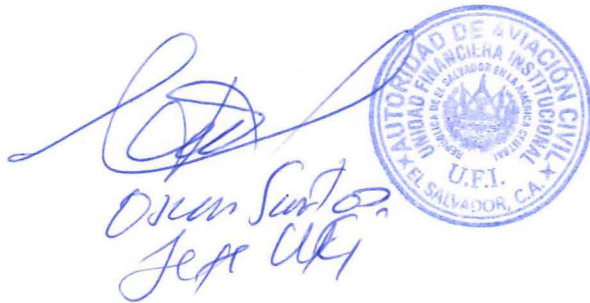 AUTORIDAD DE AVIACIÓN CIVIL
UNIDAD FINANCIERA INSTITUCIONAL
REPÚBLICA DE EL SALVADOR EN LA AMÉRICA CENTRAL
U.F.I.
EL SALVADOR, C.A.
Oscar Santos
Jefe UFI